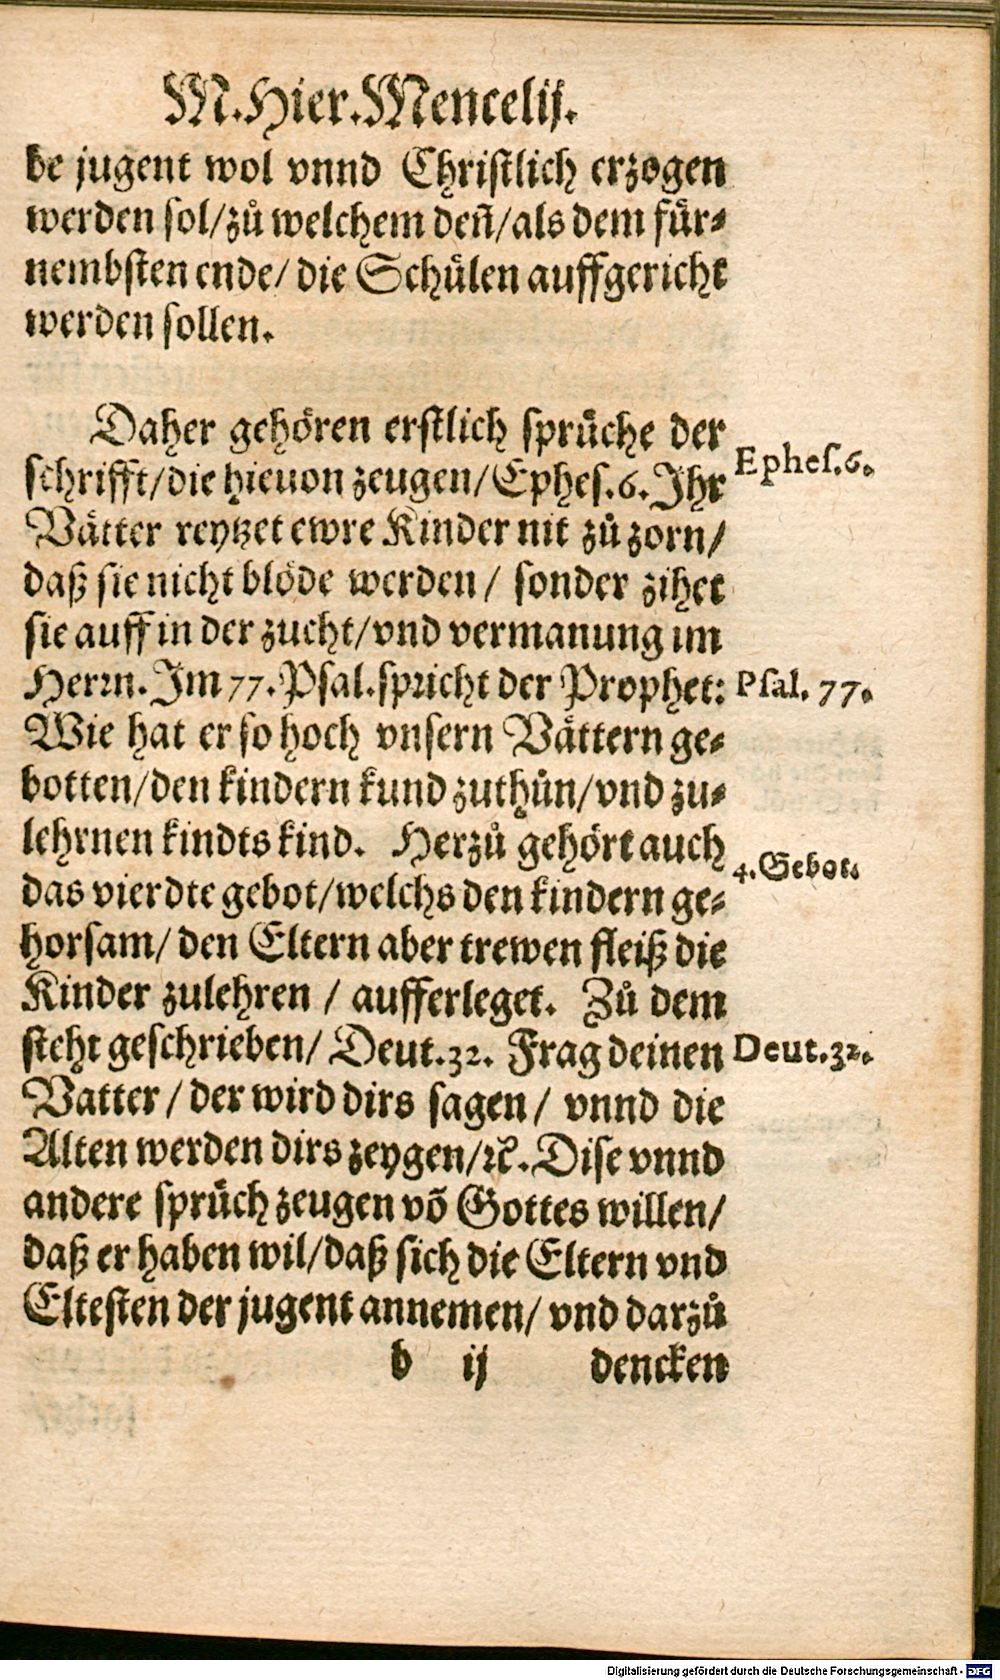 M. Hier. Mencelij.
be jugent wol vnnd Christlich erzogen
werden sol/zů welchem deñ/als dem für⸗
nembsten ende/ die Schůlen auffgericht
werden sollen.
Daher gehören erstlich sprüche der
schrifft/die hieuon zeugen/Ephes.6. Ihr
Ephes.6.
Vätter reytzet ewre Kinder nit zů zorn/
daß sie nicht blöde werden/ sonder zihet
sie auff in der zucht/vnd vermanung im
Herrn. Im 77. Psal. spricht der Prophet:
Psal. 77.
Wie hat er so hoch vnsern Vättern ge⸗
botten/den kindern kund zuthůn/vnd zu⸗
lehrnen kindts kind. Herzů gehört auch
4. Gebot.
das vierdte gebot/welchs den kindern ge⸗
horsam/ den Eltern aber trewen fleiß die
Kinder zulehren / aufferleget. Zů dem
steht geschrieben/ Deut.32. Frag deinen
Deut.32.
Vatter / der wird dirs sagen / vnnd die
Alten werden dirs zeygen/ꝛc. Dise vnnd
andere sprüch zeugen võ Gottes willen/
daß er haben wil/daß sich die Eltern vnd
Eltesten der jugent annemen/ vnd darzů
b ij dencken
Digitalisierung gefördert durch die Deutsche Forschungsgemeinschaft - DFG